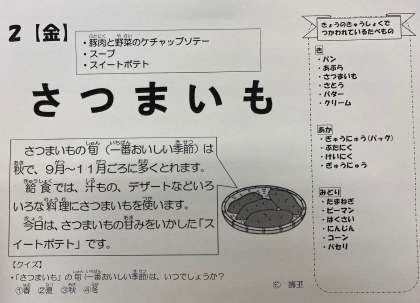 ２【金】
・豚肉と野菜のケチャップソテー
・スープ
・スイートポテト
さつまいも
さつまいもの旬（一番おいしい季節）は
秋で、９月～１１月ごろに多くとれます。
給食では、汁もの、デザートなどいろ
いろな料理にさつまいもを使います。
今日は、さつまいもの甘みをいかした「ス
イートポテト」です。
【クイズ】
・「さつまいも」の旬（一番おいしい季節）は、いつでしょうか？
①春 ②夏 ③秋 ④冬
きょうのきゅうしょくで
つかわれているたべもの
き
・パン
・あぶら
・さつまいも
・さとう
・バター
・クリーム
あか
・ぎゅうにゅう（パック）
・ぶたにく
・けいにく
・ぎゅうにゅう
みどり
・たまねぎ
・ピーマン
・はくさい
・にんじん
・コーン
・パセリ